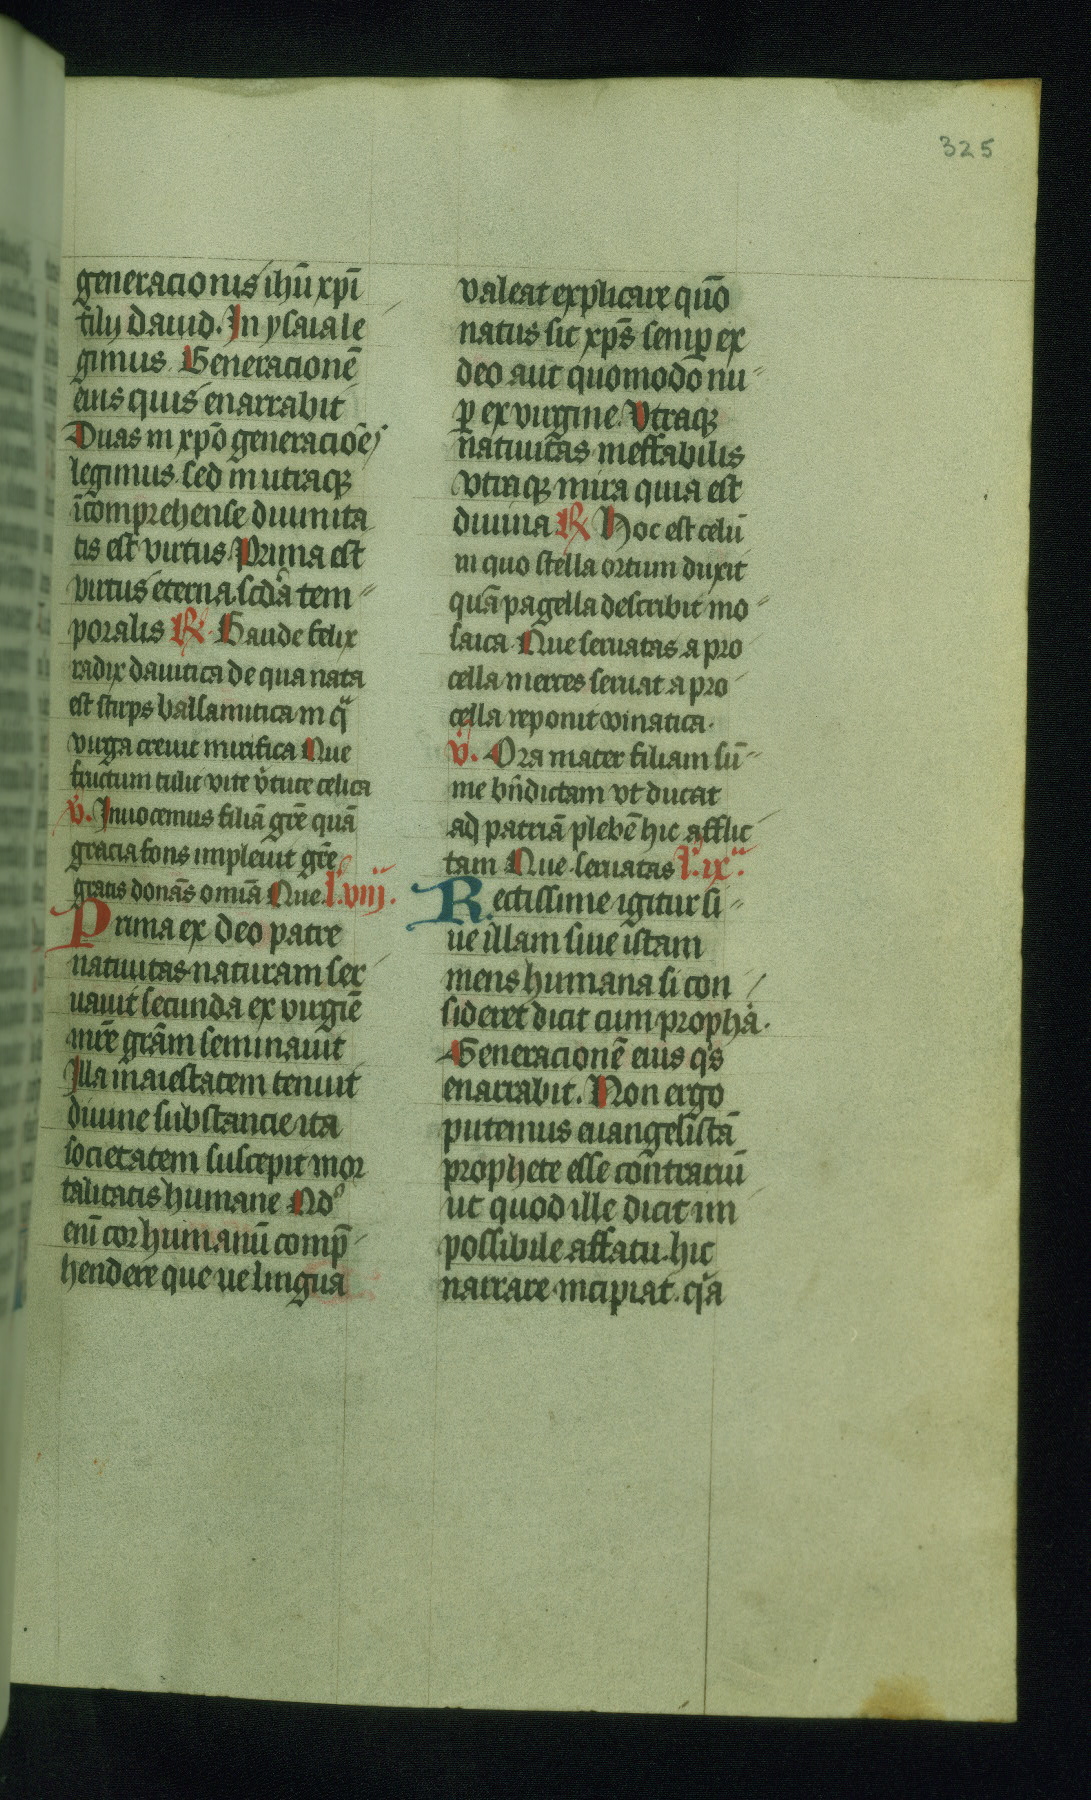 325
generacionis ihū xpī
filij dauid. In ysaia le
gimus. Generacionē
eius quis enarrabit
Duas in xpō generacioēs
legimus. sed in utraqꝫ
īcomprehense diuinita
tis est virtus Prima est
virtus eterna. scdᷓa tem
poralis ℟ Gaude felix
radix dauitica de qua nata
est stirps balsamitica in qͣ
virga creuit mirifica Que
fructum tulit vite v̾tute celica
℣. Inuocemus filiā grē quā
gracia fons impleuit grē
gratis donās omīa Que. l'. viijᵃ.
Prima ex deo patre
natiuitas naturam ser
uauit secunda ex virgiē
mr̄e grām seminauit
Illa maiestatem tenuit
diuine substancie ita
societatem suscepit mor
talitatis humane Qd
enī cor humanū comp̄
hendere que ue lingua
valeat explicare quō
natus sit xp̄s semꝑ ex
deo aut quomodo nu
ꝑ ex virgine. Vtraqꝫ
natiuitas ineffabilis
vtraqꝫ mira quia est
diuina ℟ Hoc est celū
in quo stella ortum duxit
quā pagella describit mo
saica. Que seruatas a pro
cella merces seruat a pro
cella reponit vinatica.
℣. Ora mater filiam sū
me bn̄dictam vt ducat
ad patriā plebē hic afflic
tam Que seruatas l'. ixᵃ.
Rectissime igitur si
ue illam siue istam
mens humana si con
sideret dicit cum prophā.
Generacionē eius qͥs
enarrabit. Non ergo
putemus euangelistā
prophete esse contrariū
ut quod ille dicit im
possibile affatu. hic
narrare incipiat. qͥa